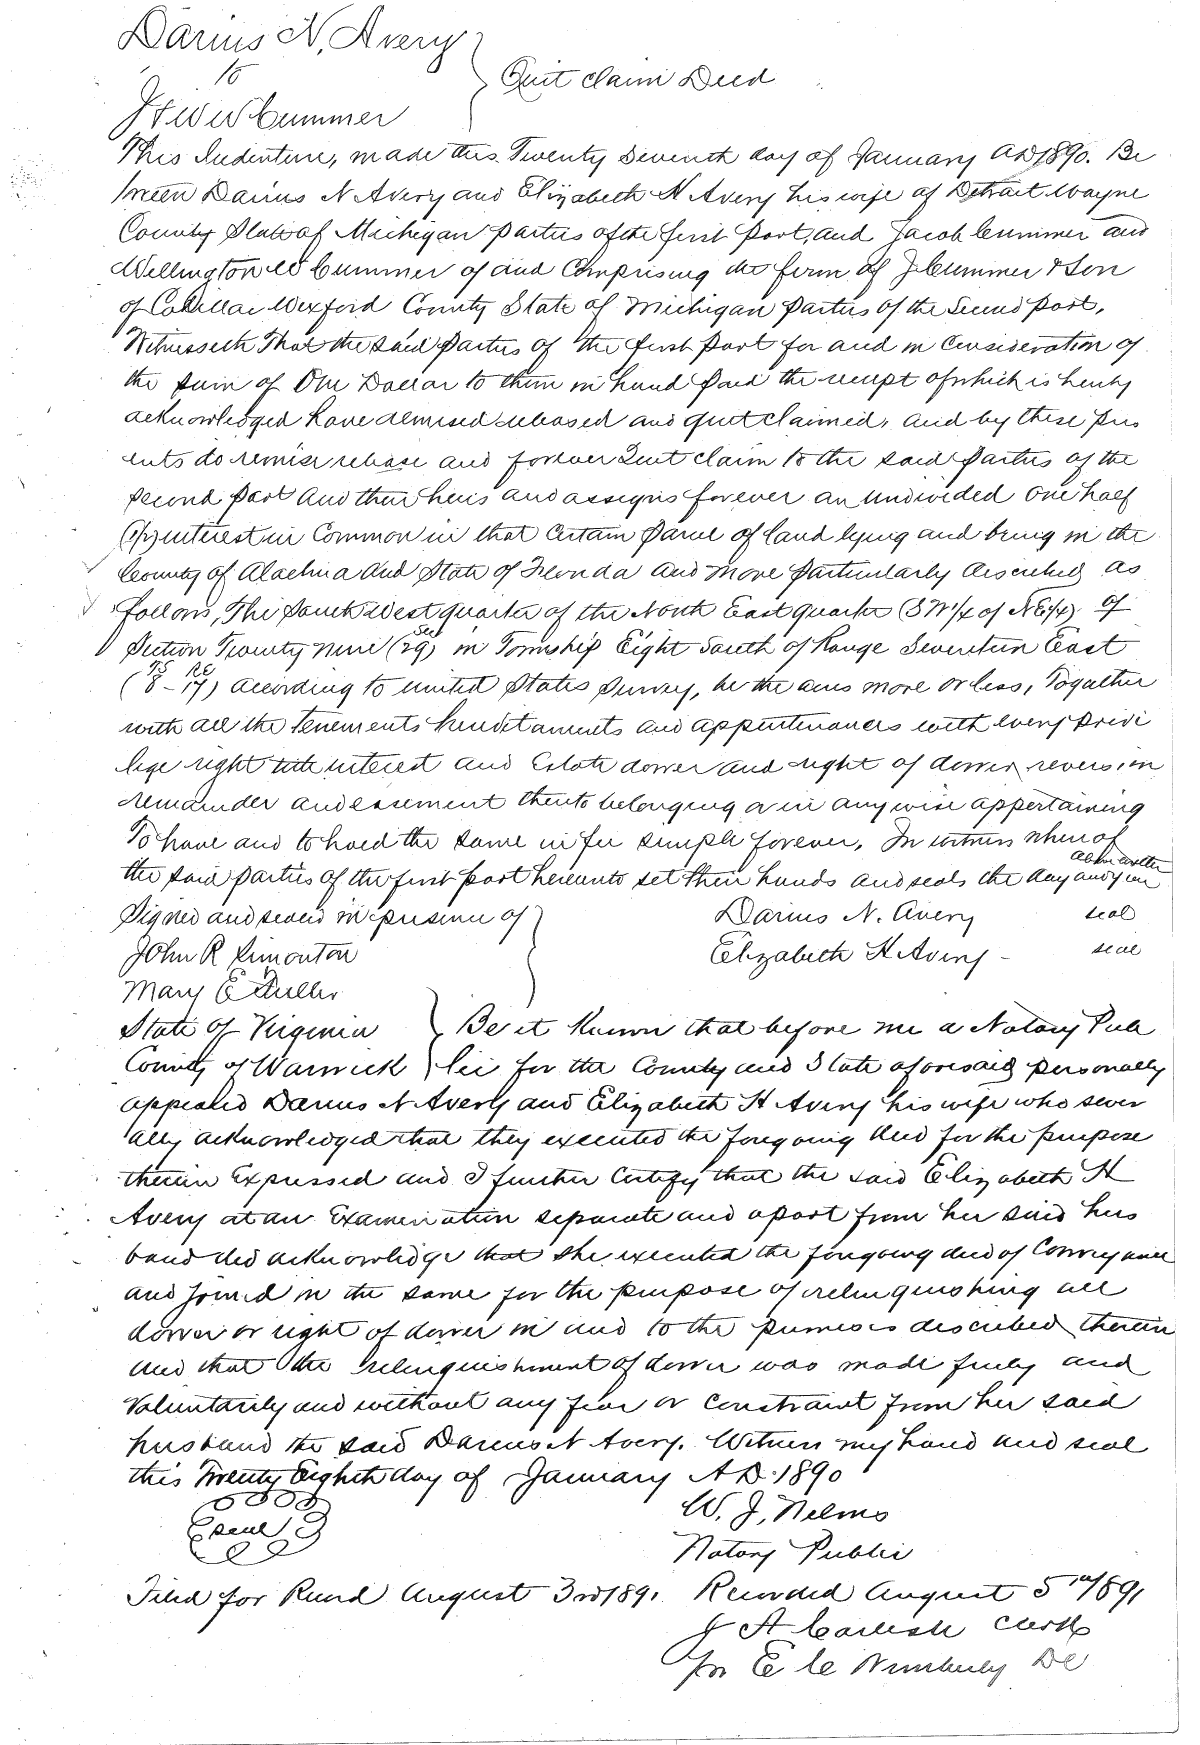 Darius N. Avery
to
Quit claim Deed
J & W W Cummer
This Indenture, made this Twenty Seventh day of January AD 1890. Be
tween Darius N Avery and Elizabeth H Avery his wife of Detroit Wayne
County State of Michigan parties of the first part, and Jacob Cummer and
Wellington W Cummer of and Comprising the firm of J Cummer & Son
of Cadillac Wexford County State of Michigan parties of the Second part,
Witnesseth That the said parties of the first part for and in Consideration of
the sum of One Dollar to them in hand paid the receipt of which is hereby
acknowledged have remised released and quit claimed, and by these pres
ents do remise release and forever Quit claim to the said parties of the
second part and their heirs and assigns forever an undivided one half
(1/2) interest in Common in that Certain parcel of land lying and being in the
County of Alachua and State of Florida and more particularly described as
follows, The South West quarter of the North East quarter (S W 1/4 of N E 1/4) of
Section Twenty nine (Sec 29) in Township Eight South of Range Seventeen East
(TS 8 - RE 17) according to united States Survey, be the acres more or less, Together
with all the tenements hereditaments and appurtenances with every privi
lege right title interest and Estate dower and right of dower reversion
remainder and easement thereto belonging or in any wise appertaining
To have and to hold the same in fee simple forever, In witness whereof
the said parties of the first part hereunto set their hands and seals the day and year above written
Signed and sealed in presence of
Darius N. Avery seal
John R Simonton
Elizabeth H Avery - seal
Mary E Fuller
State of Virginia
Be it Known that before me a Notary Pub
County of Warwick
lic for the County and State aforesaid personally
appeared Darius N Avery and Elizabeth H Avery his wife who sever
ally acknowledged that they executed the foregoing deed for the purpose
therein Expressed and I further Certify that the said Elizabeth H
Avery at an Examination separate and apart from her said hus
band did acknowledge that she executed the foregoing deed of Conveyance
and joined in the same for the purpose of relinquishing all
dower or right of dower in and to the premises described therein
and that the relinquishment of dower was made freely and
Voluntarily and without any fear or Constraint from her said
husband the said Darius N Avery. Witness my hand and seal
this Twenty Eighth day of January A D. 1890
seal
W. J. Nelms
Notary Public
Filed for Record August 3rd 1891 Recorded August 5th 1891
J A Carlisle Clerk
per E C Wimberly DC